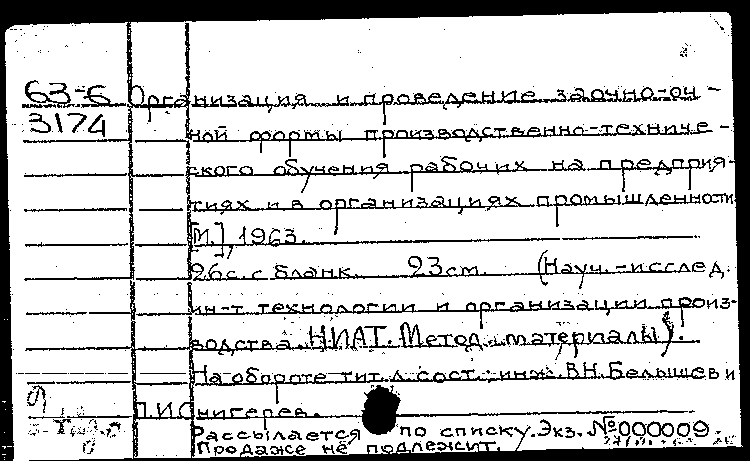 63-6 Организация и проведение заочно-оч-
3174 ной формы производственно-техниче-
ского обучения рабочих на предприя-
тиях и в организациях промышленности
[М.], 1963.
26с. с бланк. 23см. (Науч.-исслед.
ин-т технологии и организации произ-
водства. НИАТ. Метод. материалы).
На обороте тит. л. сост.: инж. В.Н. Белышев и
П.И. Снигерев.
Рассылается по списку. Экз. №000009.
Продаже не подлежит.